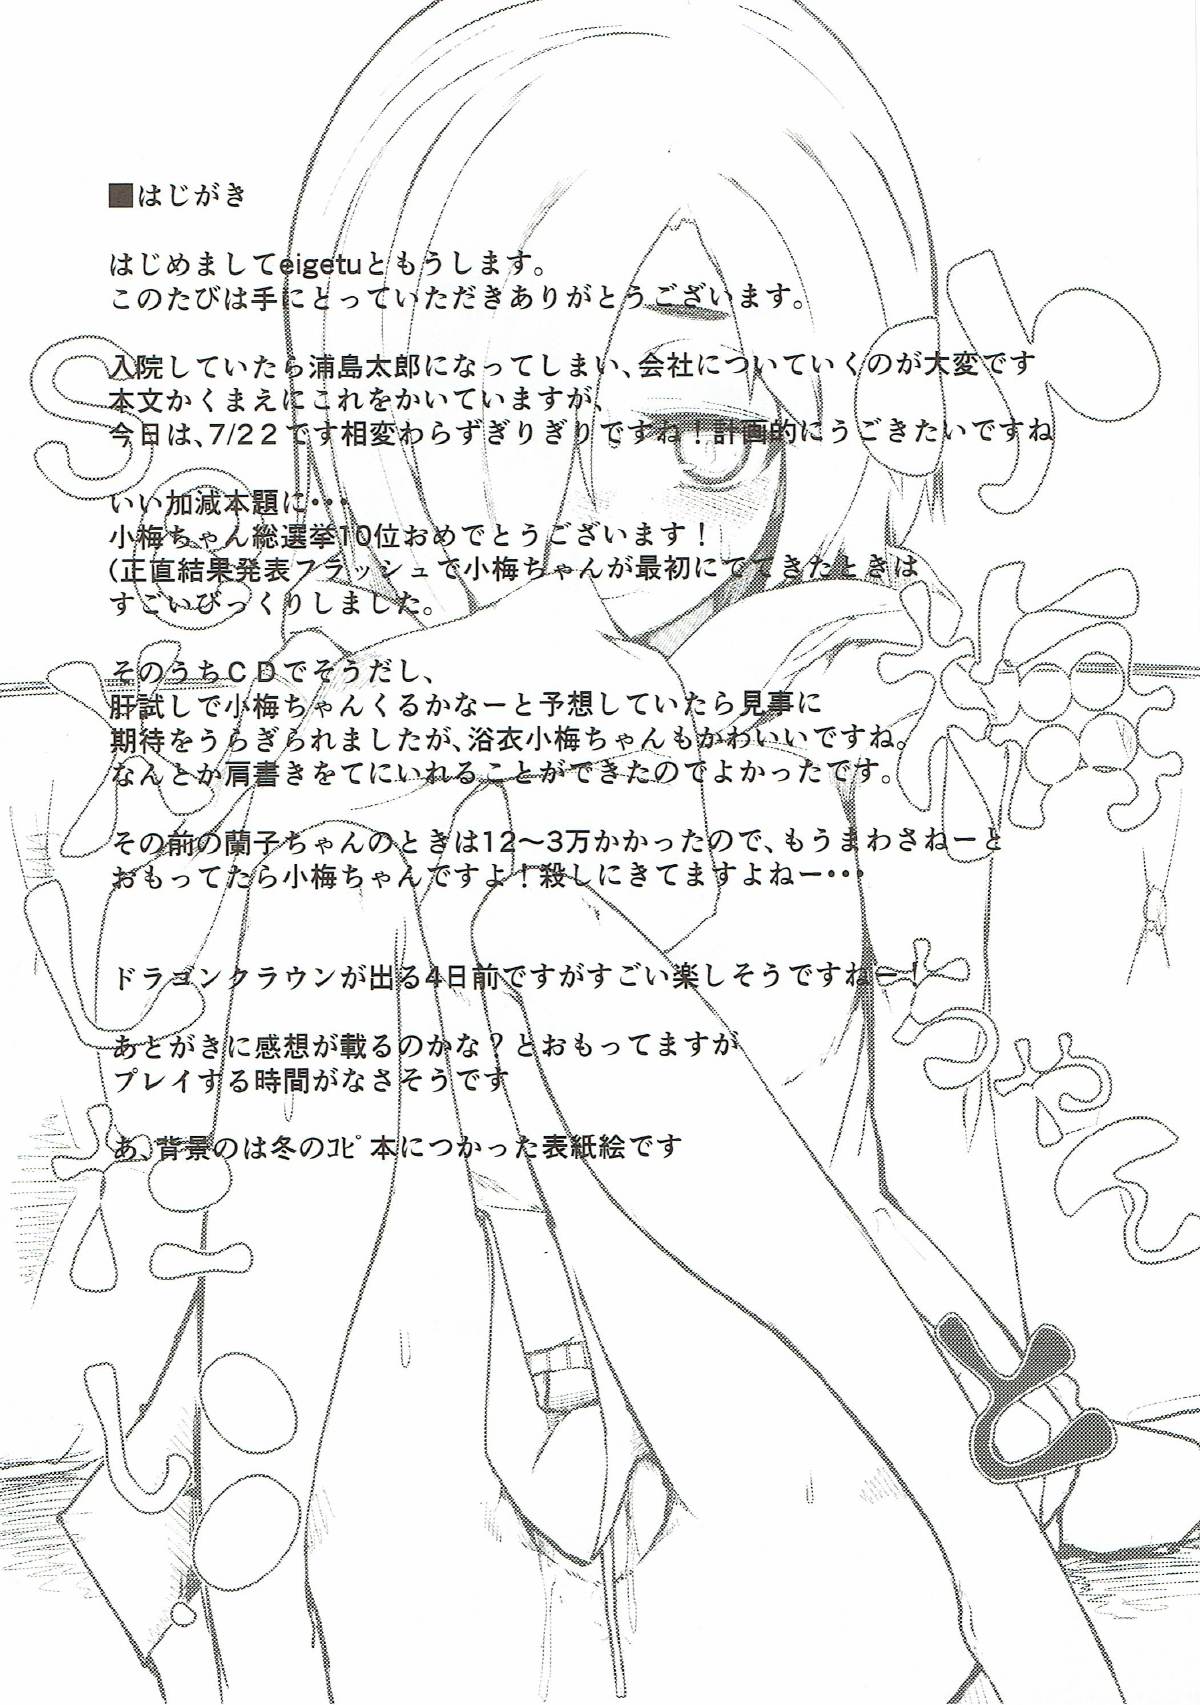 ■はじがき
はじめましてeigetuともうします。
このたびは手にとっていただきありがとうございます。
入院していたら浦島太郎になってしまい、会社についていくのが大変です
本文かくまえにこれをかいていますが、
今日は、7/22です相変わらずぎりぎりですね！計画的にうごきたいですね
いい加減本題に・・・
小梅ちゃん総選挙10位おめでとうございます！
(正直結果発表フラッシュで小梅ちゃんが最初にでてきたときは
すごいびっくりしました。
そのうちＣＤでそうだし、
肝試しで小梅ちゃんくるかなーと予想していたら見事に
期待をうらぎられましたが、浴衣小梅ちゃんもかわいいですね。
なんとか肩書きをてにいれることができたのでよかったです。
その前の蘭子ちゃんのときは12〜3万かかったので、もうまわさねーと
おもってたら小梅ちゃんですよ！殺しにきてますよねー・・・
ドラゴンクラウンが出る4日前ですがすごい楽しそうですねー！
あとがきに感想が載るのかな？とおもってますが
プレイする時間がなさそうです
あ、背景のは冬のｺﾋﾟ本につかった表紙絵です